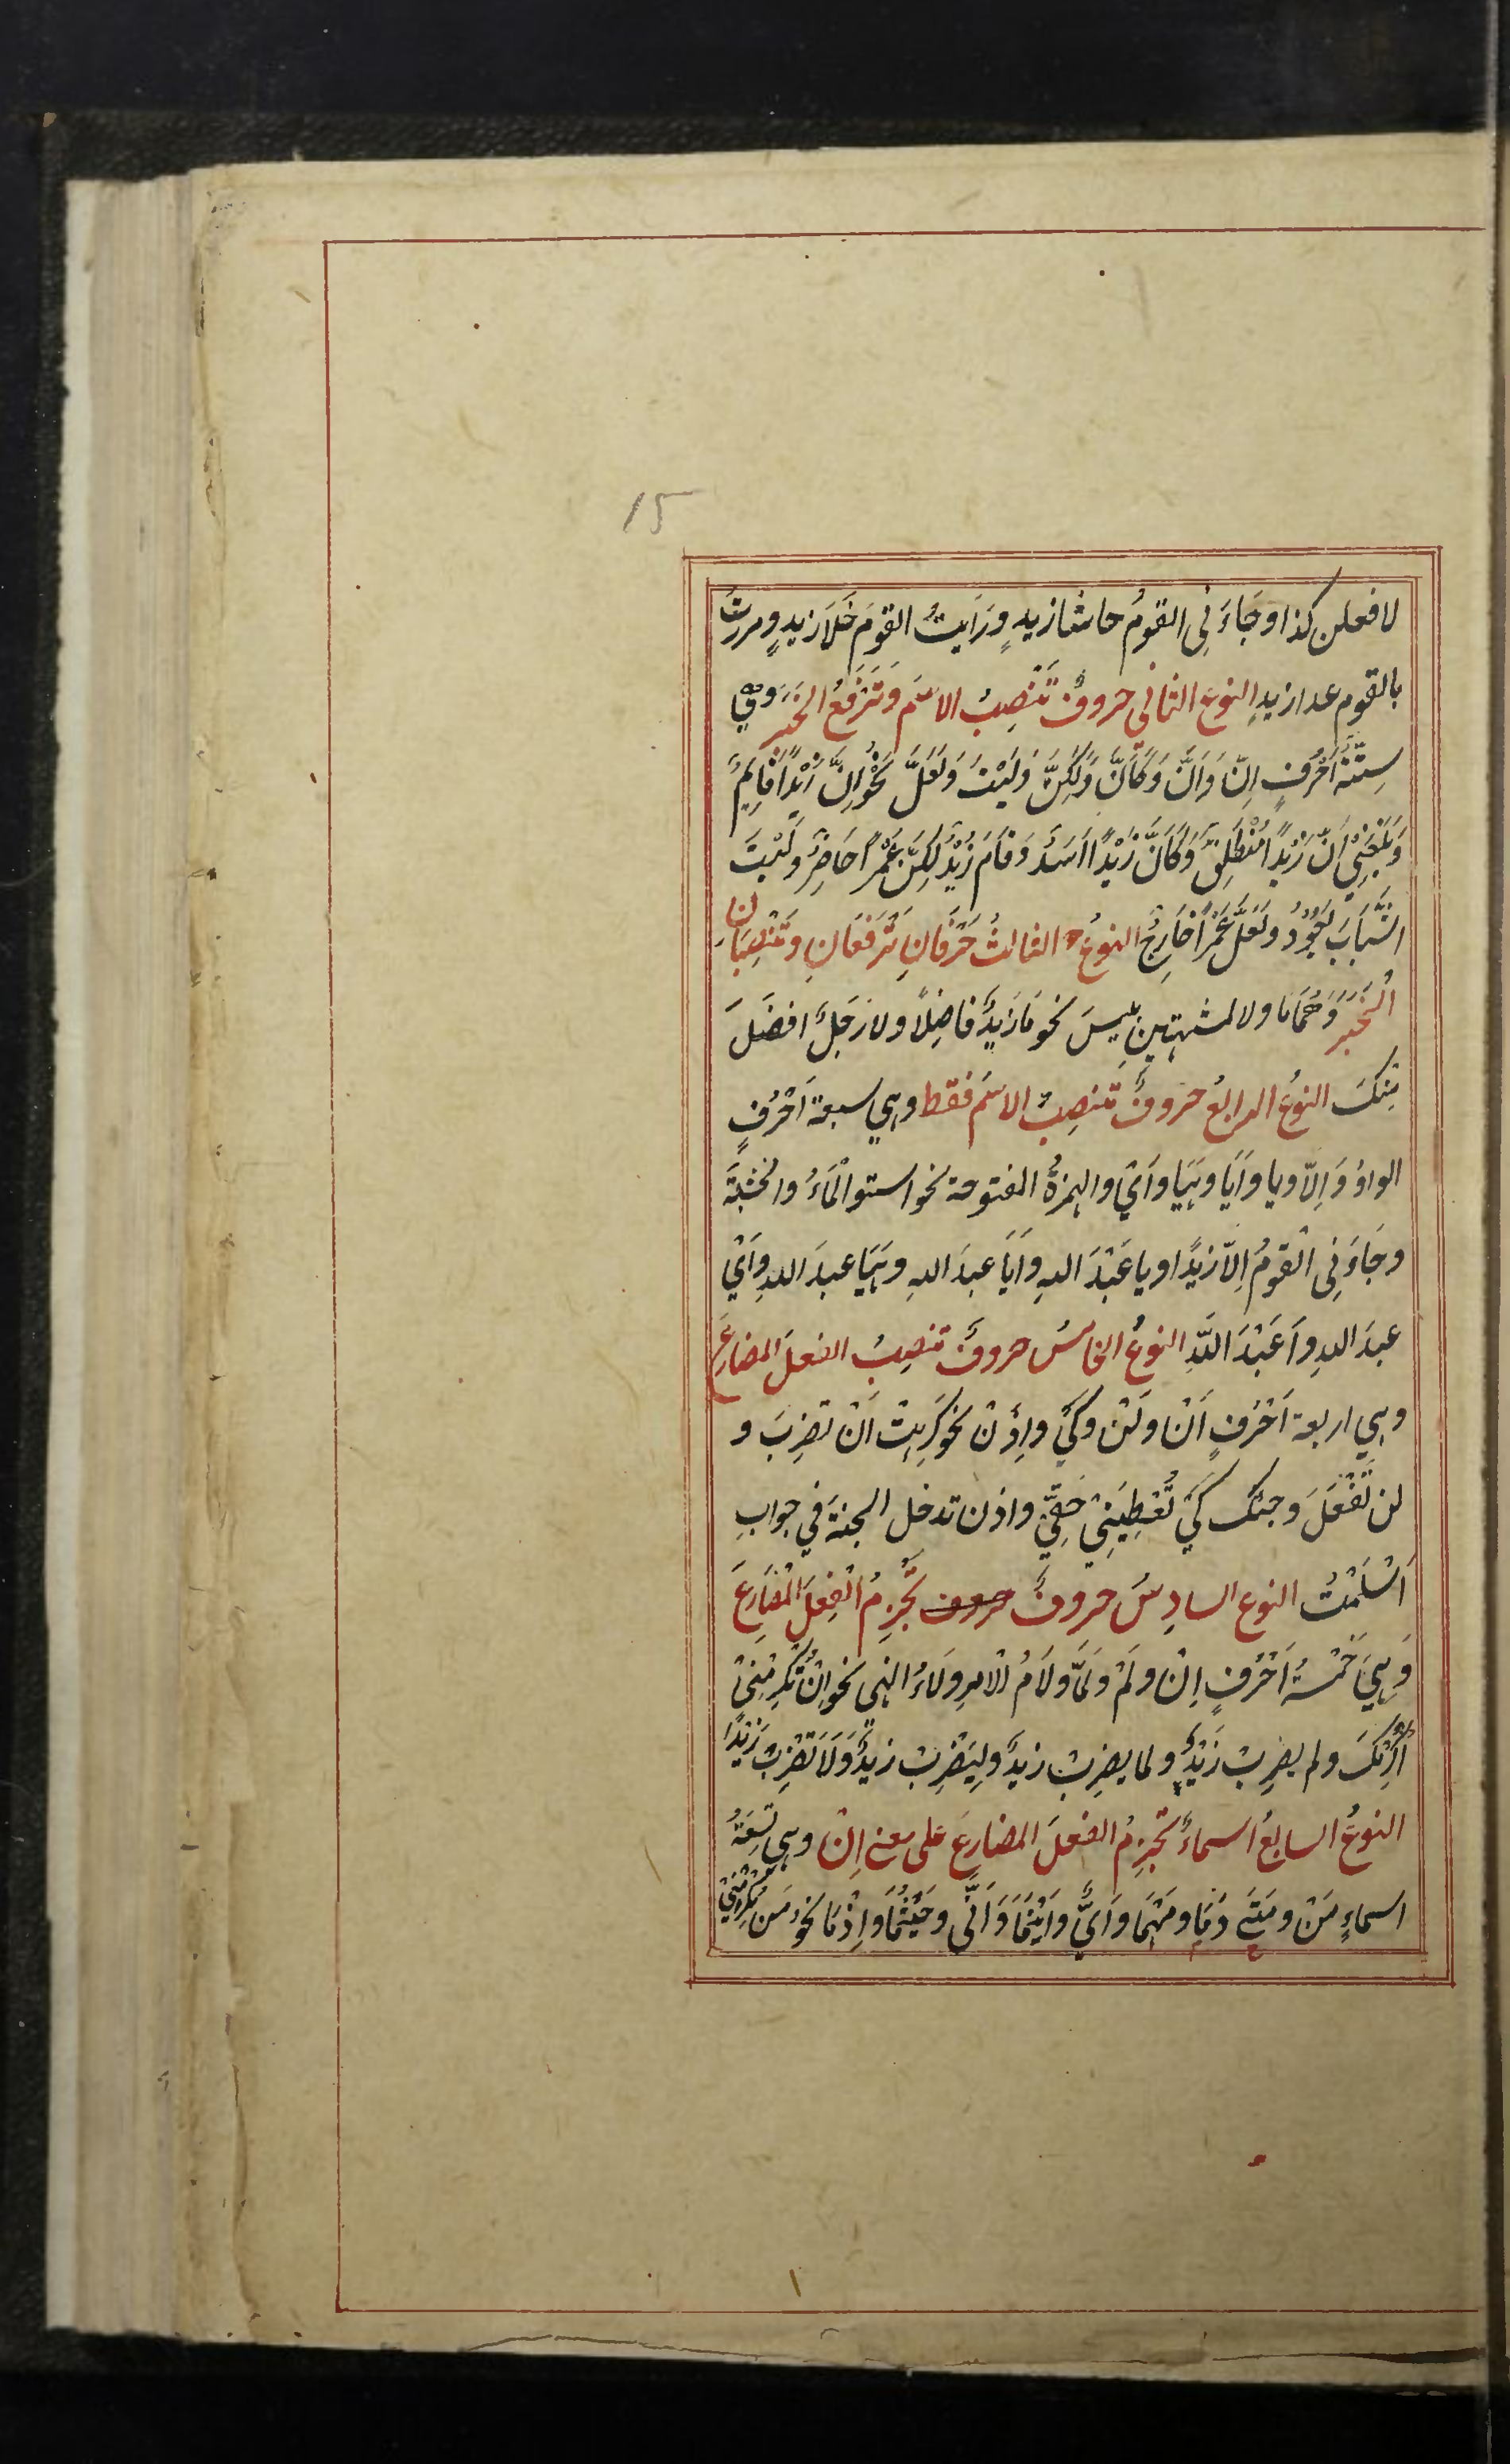 15
لافعلن كذا وجَاءَنِى القومُ حاشا زيدٍ ورَاَيتُ القومَ خَلَا زيدٍ ومررتُ
بالقومِ عدا زيدٍ النوع الثانى حروفٌ تَنْصِبُ الاسمَ وَتَرْفَعُ الخَبَرَ وهِىَ
سِتَّةُ اَحْرُفٍ اِنَّ وَاَنَّ وَكَاَنَّ وَلٰكِنَّ وَلَيْتَ وَلَعَلَّ نَحْوُ اِنَّ زَيْدًا قَايِمٌ
وَبَلَغَنِىْ اَنَّ زَيْدًا مُنْطَلِقٌ وَكَاَنَّ زَيْدًا اَسَدٌ وَقَامَ زَيْدٌ لٰكِنَّ عَمْرًا حَاضِرٌ وَلَيْتَ
الشَّبَابَ يَعُوْدُ ولَعَلَّ عَمْرًا خَارِجٌ النوعُ الثالثُ حَرْفَانِ تَرْفَعَانِ وتَنْصِبَانِ
الْخَبَرَ وَهُمَا مَا ولا لمشبهتينِ بليسَ نحو مَا زَيدٌ فاضِلًا ولا رَجُلٌ افضَلَ
مِنكَ النوعُ الرابعُ حروفٌ تنصِبُ الاسمَ فقط وهي سبعة اَحْرُفٍ
الواوُ وَاِلَّا ويا وَاَيَا وهَيَا واَىْ والهمزةُ المفتوحة نحو استوالْمَاءُ والخشبَةَ
وجَاءَنِى القَومُ اِلَّا زيدًا ويا عَبْدَ اللهِ واَيَا عبدَ اللهِ وهَيَا عبدَ اللهِ واَىْ
عبدَ اللهِ واَعَبْدَ اللّهِ النوعُ الخامسُ حروفٌ تنصِبُ الفعلَ المضارِعَ
وهي اربعة اَحْرُفٍ اَنْ ولَنْ وكَىْ واِذَنْ نحو كَرِهتُ اَنْ تضرِبَ و
لن تَفْعَلَ وجئتك كَىْ تُعْطِيَنِىْ حَقِّىْ واذن تدخل الجنةَ في جوابِ
اَسْلَمْتُ النوع السادِسُ حروفٌ حروف تَجْزِمُ الْفِعْلَ الْمُضَارِعَ
وَهِيَ خَمْسَةُ اَحْرُفٍ اِنْ ولَمْ ولَمَّا ولَامُ الْامرِ ولَاءُ النهي نحو اِنْ تُكْرِمْنِىْ
اُكْرِمْكَ ولم يضرِبْ زَيْدٌ ولما يضرِبْ زيدٌ ولِيَضْرِبْ زيدٌ وَلَا تَضْرِبْ زَيْدًا
النوعُ السابعُ اسماءٌ تجزِمُ الفعلَ المضارِعَ على معنى اِنْ وهي تِسْعَةُ
اسماءٍ مَنْ ومَتَى ومَا ومَهْمَا واَىٌّ واَيْنَمَا وَاَنَّى وحَيْثُمَا واِذْمَا نحوُ مَن يُكْرِمْنِىْ